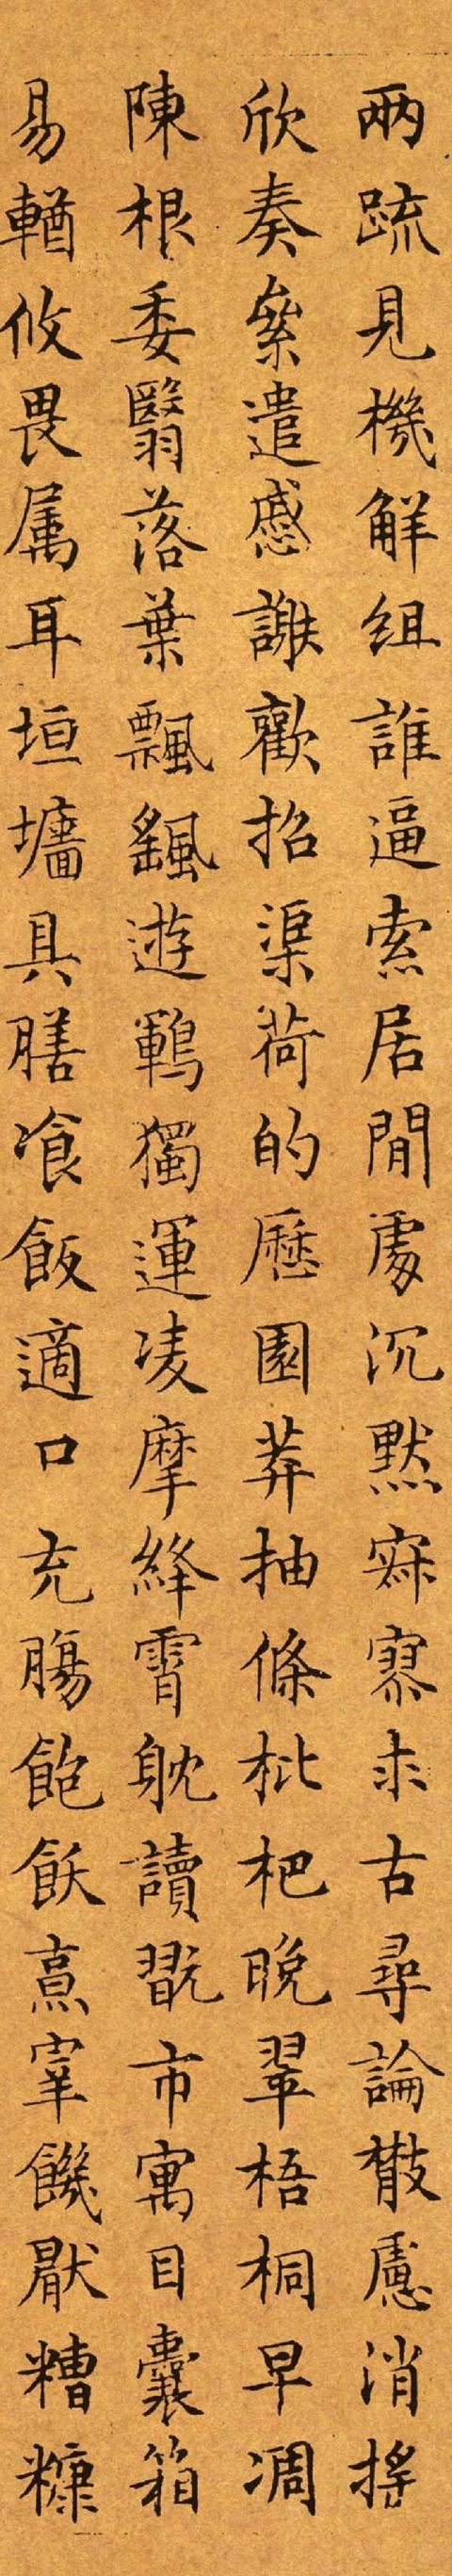 兩疏見機解组誰逼索居閒處沉默寂寥求古尋論散慮消摇
欣奏累遣慼謝歡招渠荷的歷園莽抽條枇杷晚翠梧桐早凋
陳根委翳落葉飄颻遊鵾獨運凌摩絳霄躭讀翫市寓目囊箱
易輶攸畏属耳垣墻具膳飡飯適口充腸飽飫烹宰饑厭糟糠